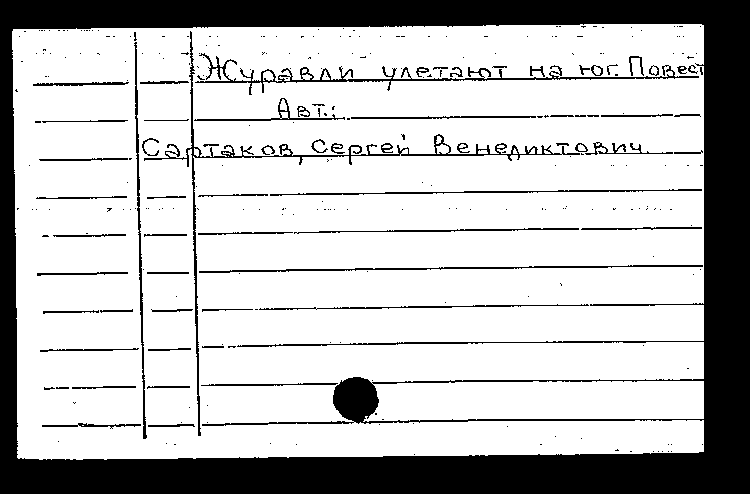 Журавли улетают на юг. Повест
Авт.:
Сартаков, Сергей Венедиктович.